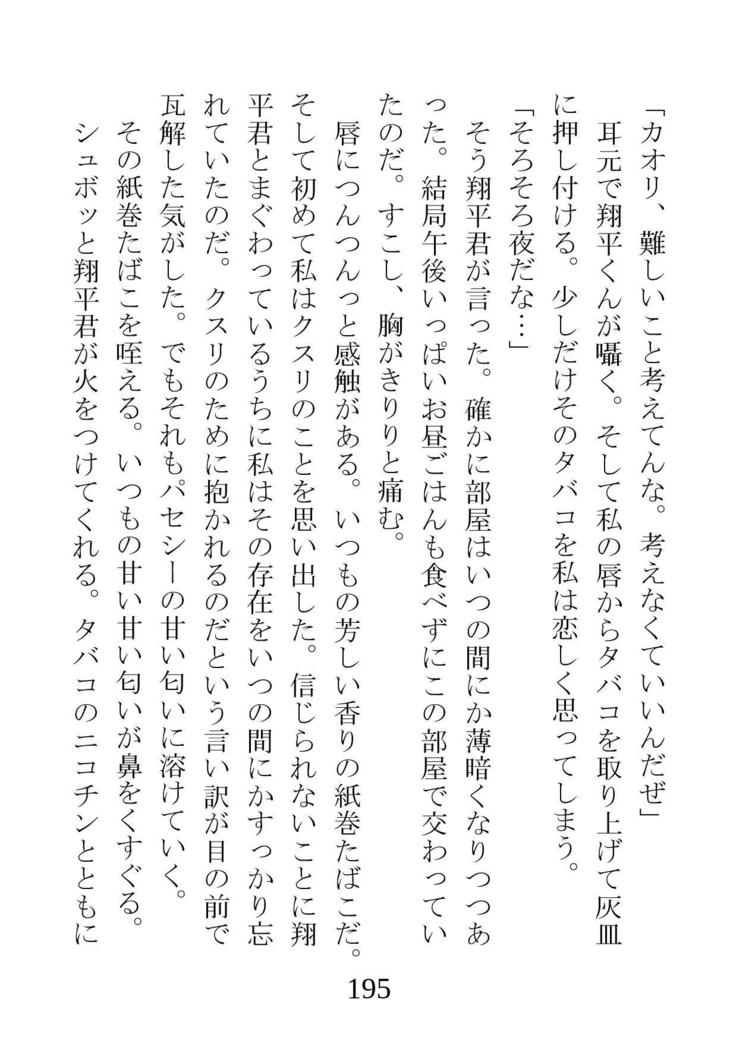 「カオリ、難しいこと考えてんな。考えなくていいんだぜ」
耳元で翔平くんが囁く。そして私の唇からタバコを取り上げて灰皿
に押し付ける。少しだけそのタバコを私は恋しく思ってしまう。
「そろそろ夜だな…」
そう翔平君が言った。確かに部屋はいつの間にか薄暗くなりつつあ
った。結局午後いっぱいお昼ごはんも食べずにこの部屋で交わってい
たのだ。すこし、胸がきりりと痛む。
唇につんつんっと感触がある。いつもの芳しい香りの紙巻たばこだ。
そして初めて私はクスリのことを思い出した。信じられないことに翔
平君とまぐわっているうちに私はその存在をいつの間にかすっかり忘
れていたのだ。クスリのために抱かれるのだという言い訳が目の前で
瓦解した気がした。でもそれもパセシーの甘い匂いに溶けていく。
その紙巻たばこを咥える。いつもの甘い甘い匂いが鼻をくすぐる。
シュボッと翔平君が火をつけてくれる。タバコのニコチンとともに
195